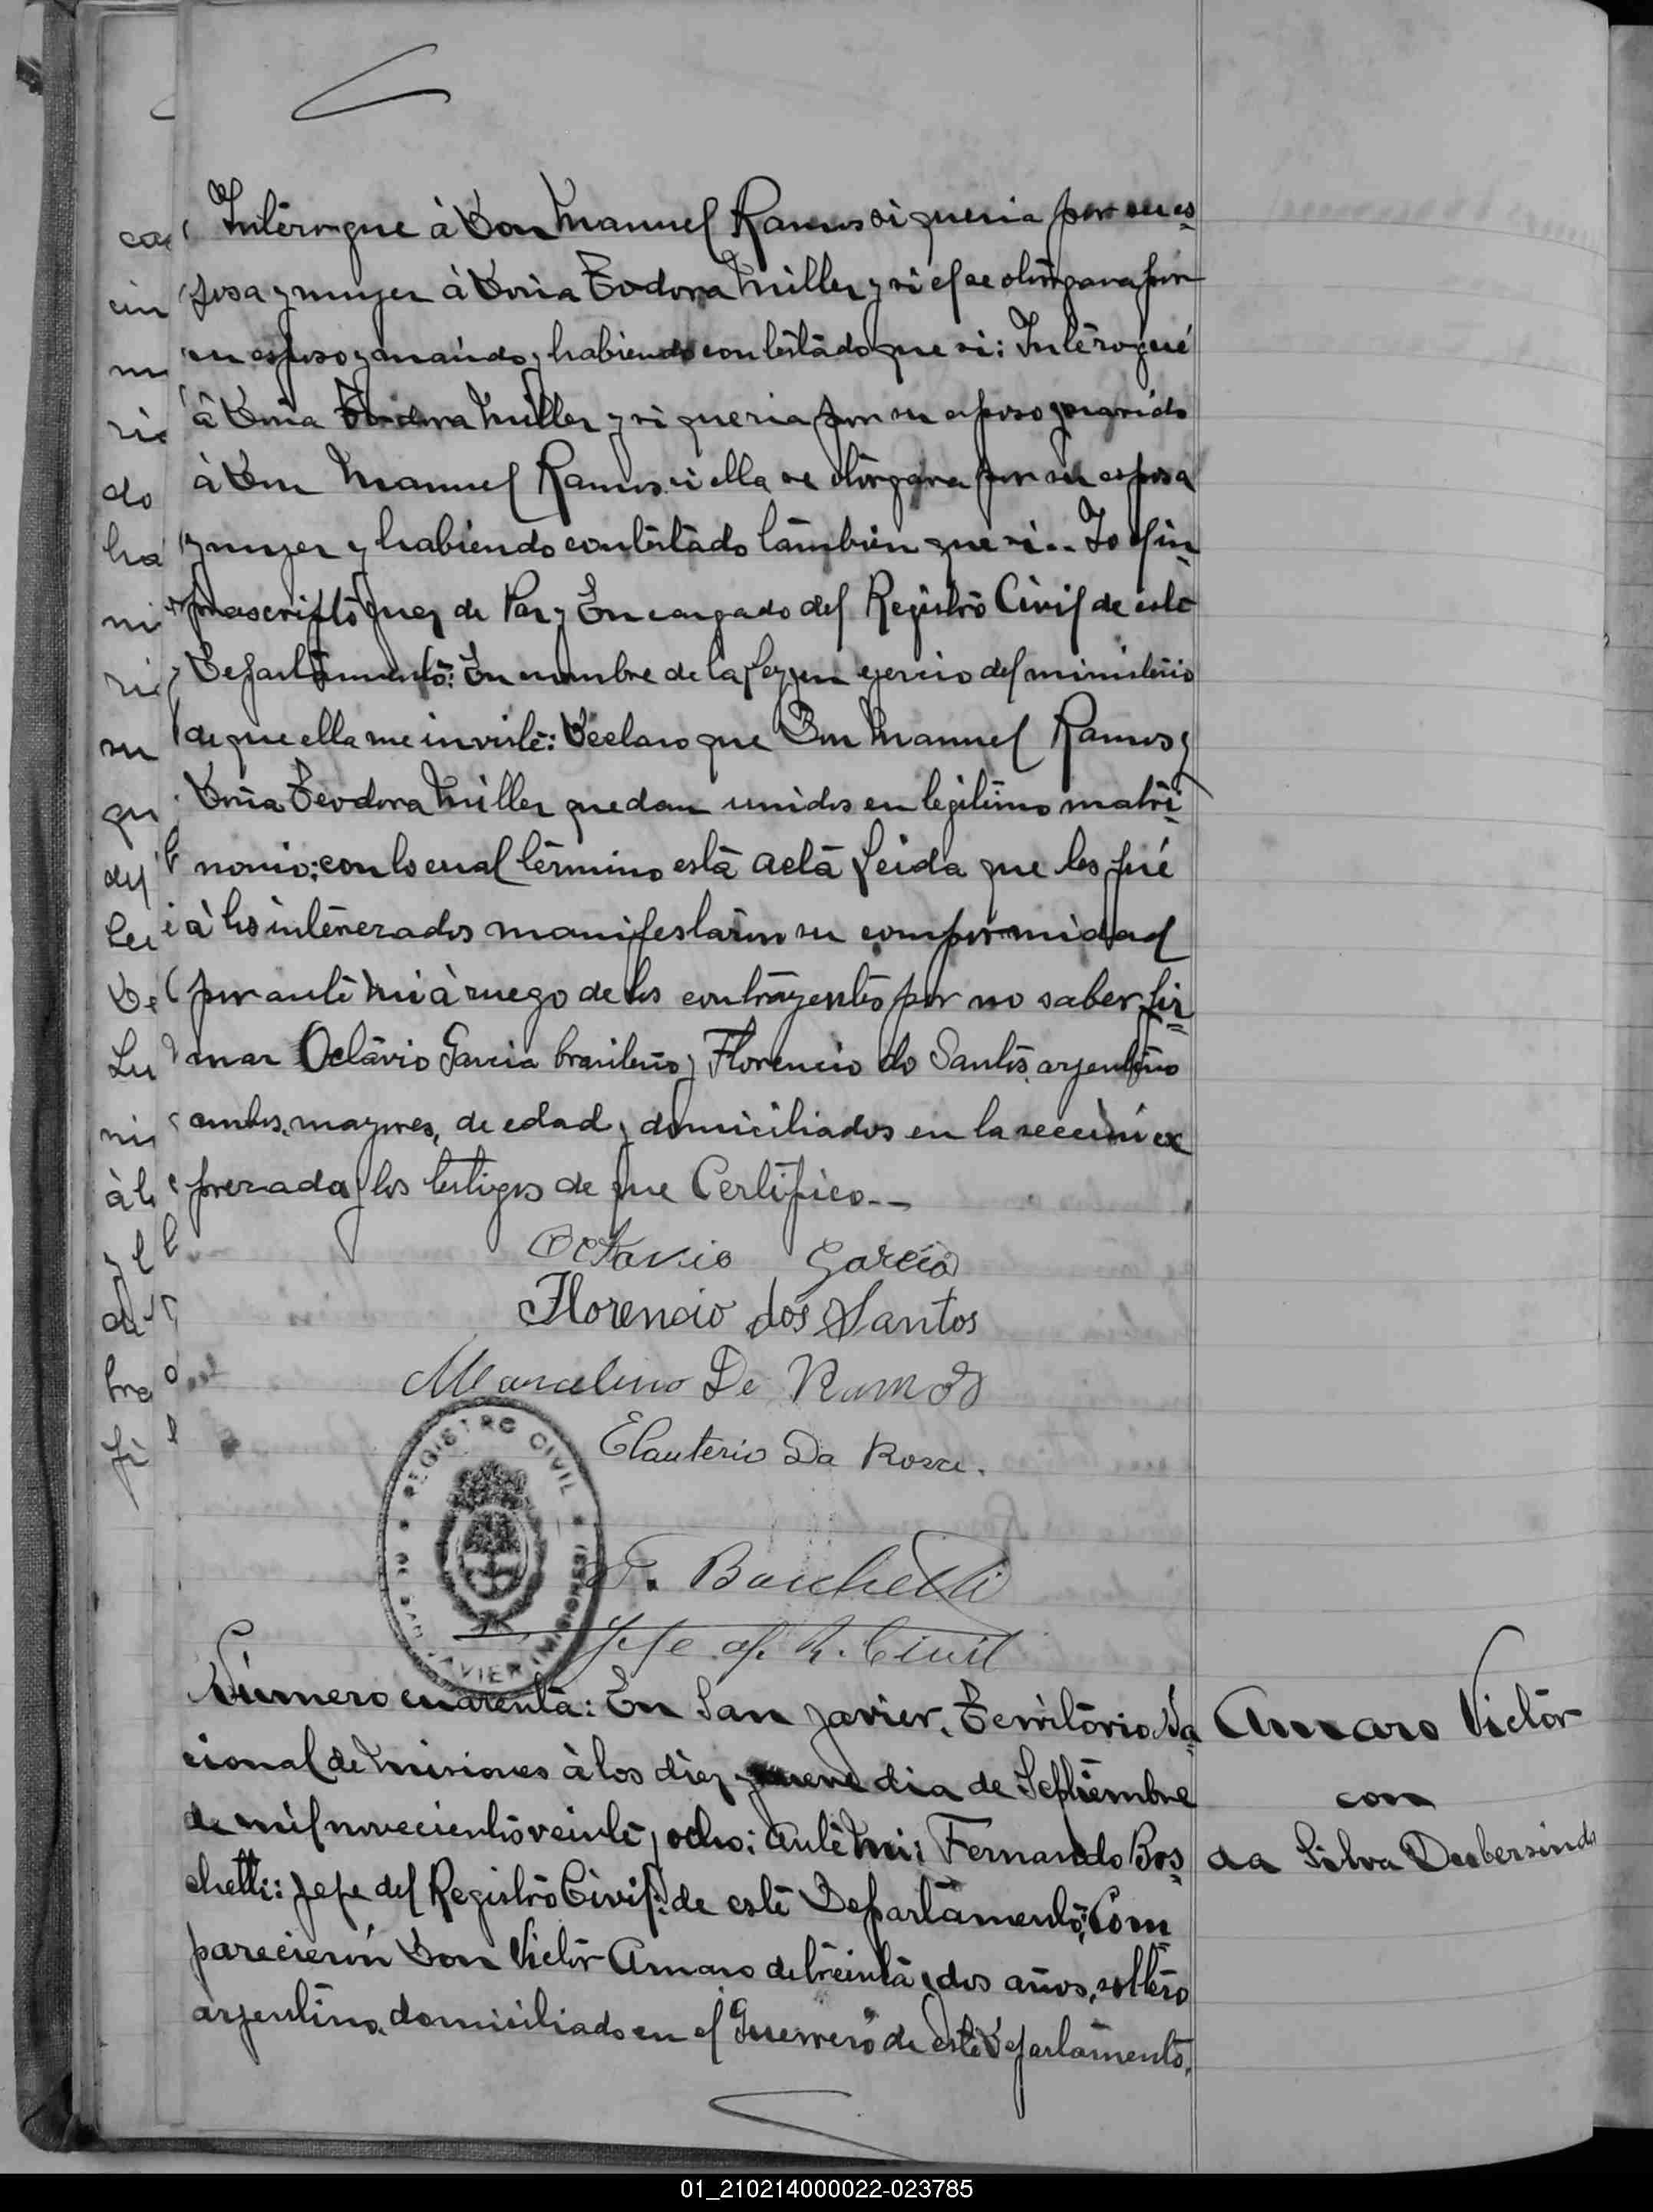 Interogue à Don Manuel Ramos si queria por su es=
posa y mujer à Doña Teodora Miller y si el se otorgava por
su esposo y marido y habiendo contestado que si: Interogué
à Doña Teodora Miller y si queria por su esposo y marido
à Don Manuel Ramos si ella se otorgava por su esposa
y mujer y habiendo contestado tambien que si.. Yo el in
prascripto Juez de Paz y Encargado del Registro Civil de este
Departamento: En nombre de la Ley y en ejercio del ministerio
de que ella me inviste: Declaro que Don Manuel Ramos y
Doña Teodora Miller quedan unidos en legitimo matri=
nonio; con lo cual término esta acta Leida que les fué
à los interezados manifestaron su comformidad
por ante mi à ruego de los contrayentes por no saber fir=
mar Octavio Garcia brasilero y Florencio do Santos argentino
ambos mayores de edad y domiciliados en la sección ex
prezada y los testigos de que Certifico.--
Octavio Garcia
Florencio dos Santos
Marcelino De Ramos
Elauterio Da Rosa.
REGISTRO CIVIL
SAN JAVIER (MISIONES)
F. Boschetti
Jefe of. R. Civil
Número cuarenta: En San Javier, Territorio Na=
cional de Misiones à los diez y nueve dia de Septiembre
de mil novecientos veinte y ocho: ante mi: Fernando Bos=
chetti: Jefe del Registro Civil: de este Departamento; Com=
parecierón Don Victor Amaro de treinta y dos años, soltero
argentino, domiciliado en el Guerrero de este Departamento.
Amaro Victor
con
da Silva Deubersinda
01_210214000022-023785